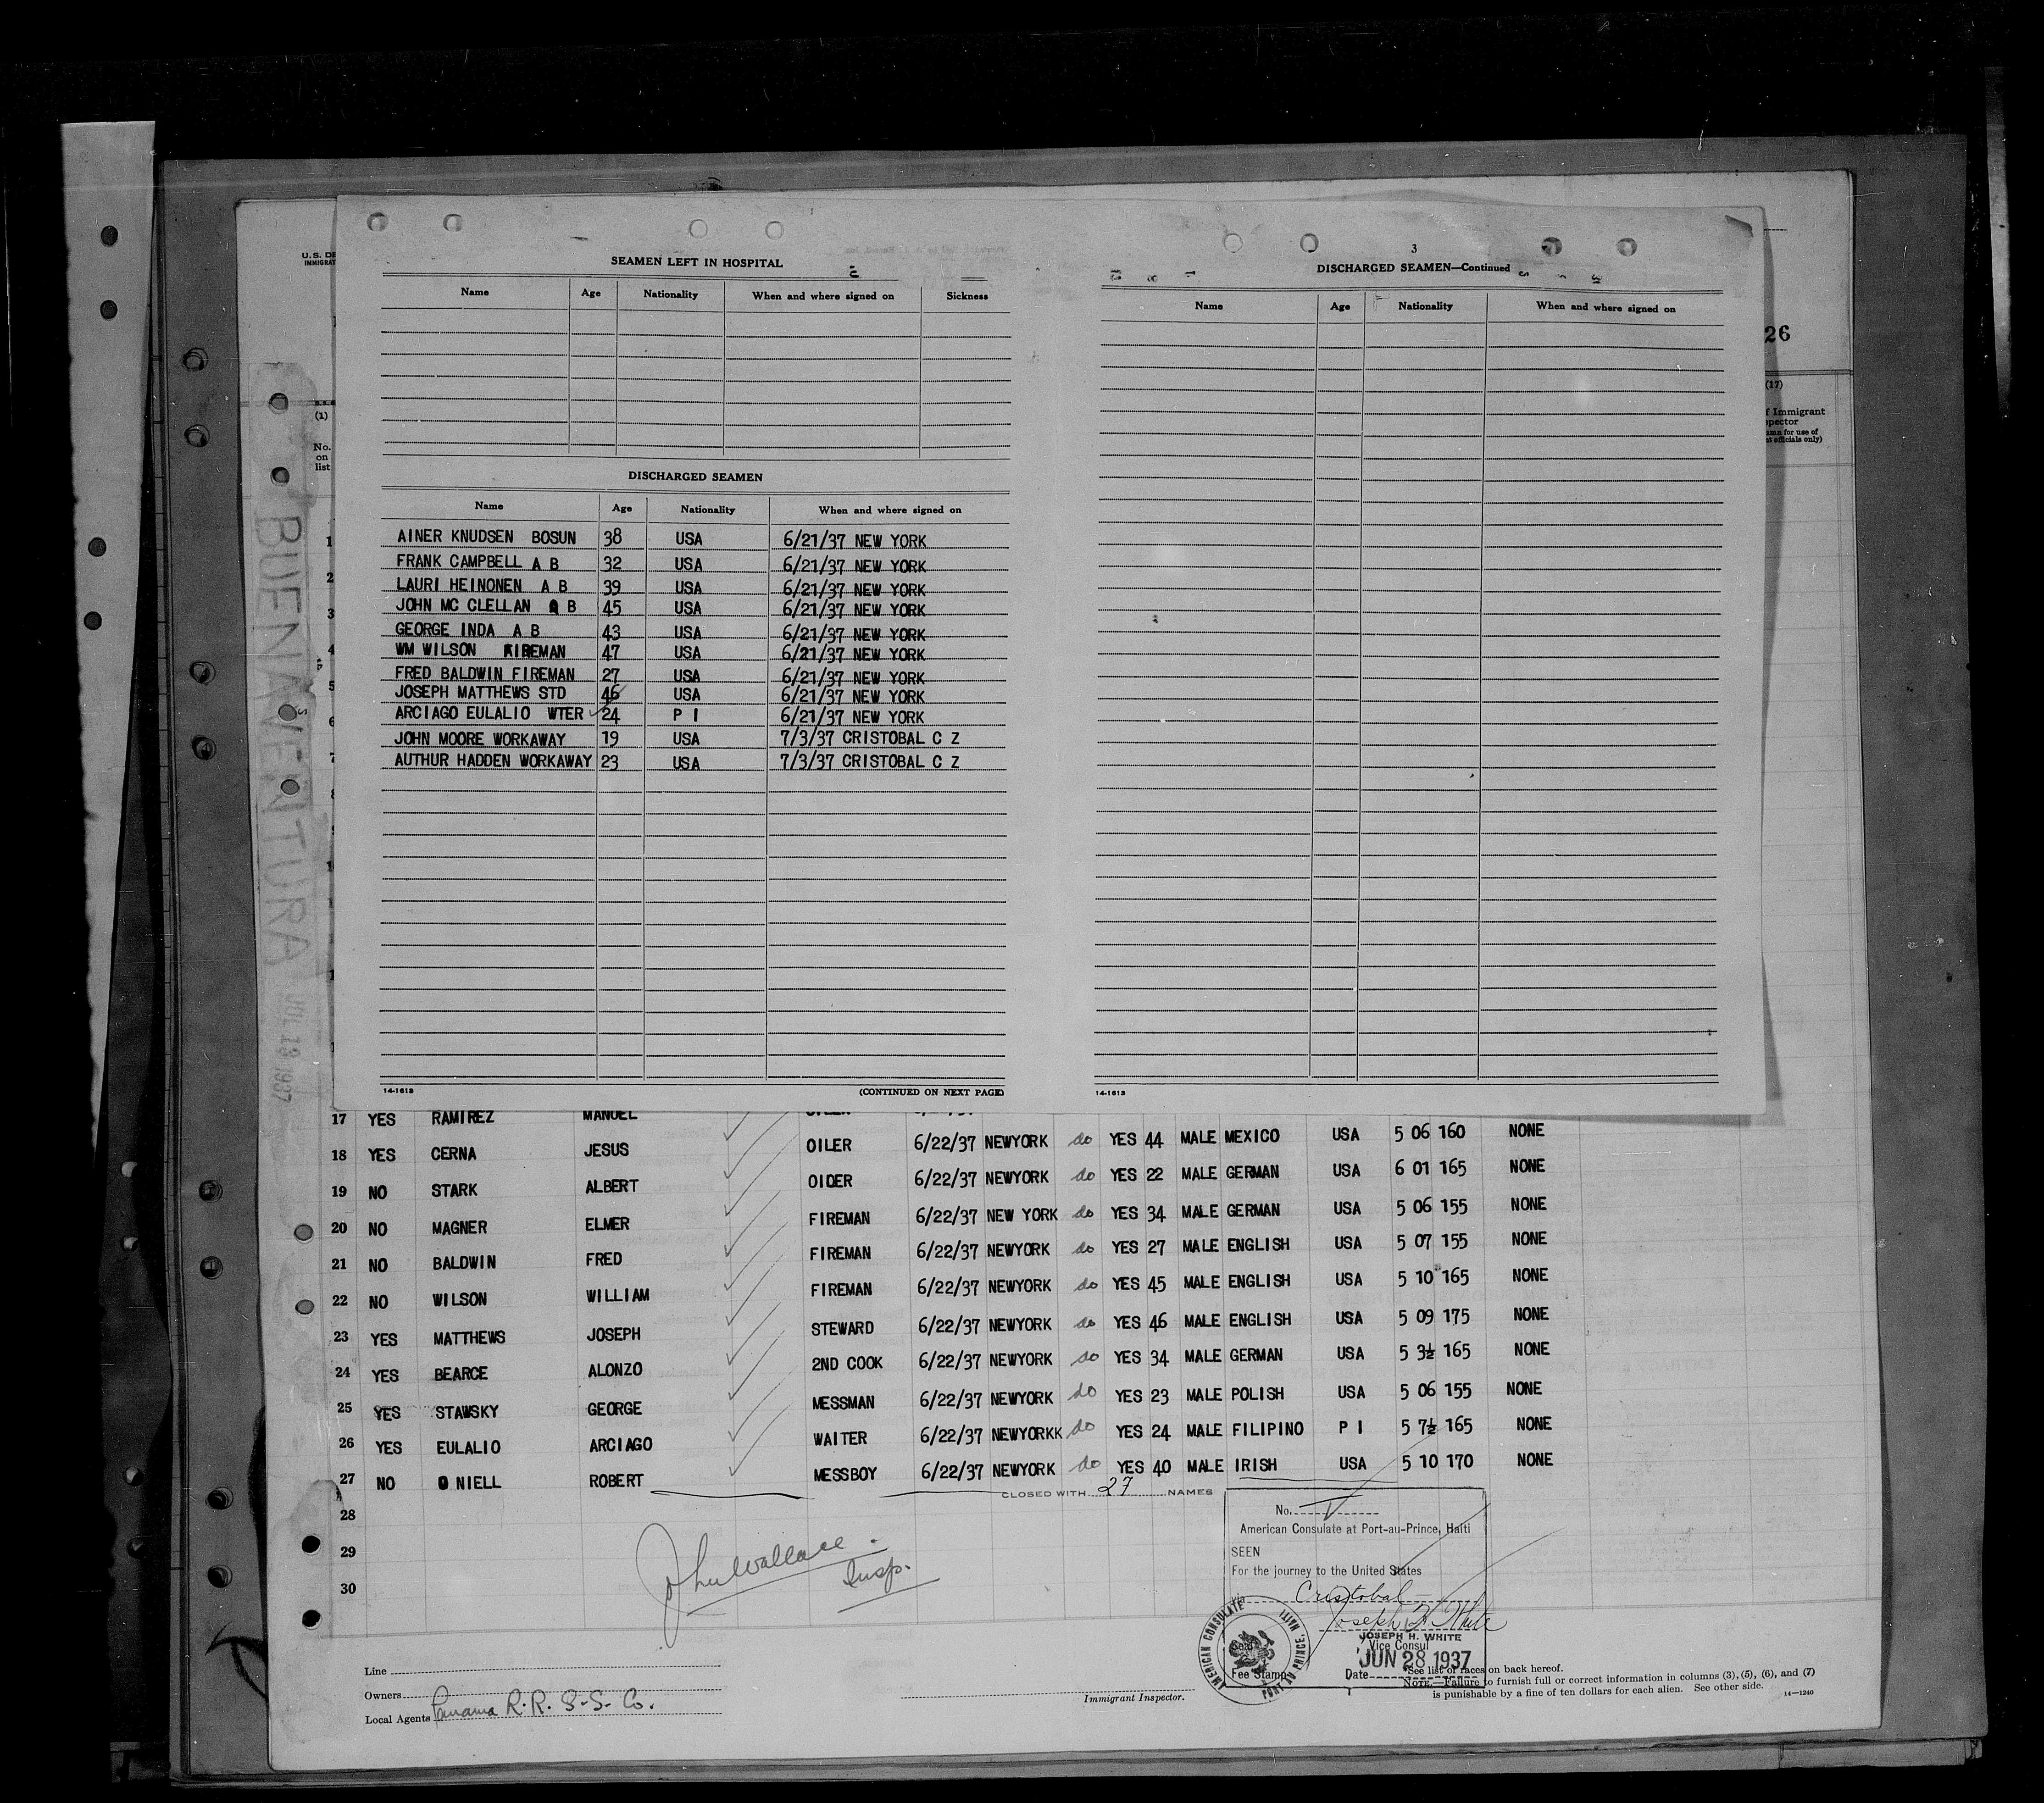 U.S. DE
IMMIGRAT
SEAMEN LEFT IN HOSPITAL
Name Age Nationality When and where signed on Sickness
DISCHARGED SEAMEN
Name Age Nationality When and where signed on
AINER KNUDSEN BOSUN 38 USA 6/21/37 NEW YORK
FRANK CAMPBELL A B 32 USA 6/21/37 NEW YORK
LAURI HEINONEN A B 39 USA 6/21/37 NEW YORK
JOHN MC CLELLAN A B 45 USA 6/21/37 NEW YORK
GEORGE INDA A B 43 USA 6/21/37 NEW YORK
WM WILSON FIREMAN 47 USA 6/21/37 NEW YORK
FRED BALDWIN FIREMAN 27 USA 6/21/37 NEW YORK
JOSEPH MATTHEWS STD 46 USA 6/21/37 NEW YORK
ARCIAGO EULALIO WTER 24 P I 6/21/37 NEW YORK
JOHN MOORE WORKAWAY 19 USA 7/3/37 CRISTOBAL C Z
AUTHUR HADDEN WORKAWAY 23 USA 7/3/37 CRISTOBAL C Z
14-1613 (CONTINUED ON NEXT PAGE)
3
DISCHARGED SEAMEN—Continued
Name Age Nationality When and where signed on
14-1613
26
(17)
f Immigrant
spector
umn for use of
nt officials only)
(1)
No.
on
list
1
2
3
4
5
6
7
8
BUENAVENTURA JUL 13 1937
17 YES RAMIREZ MANUEL
18 YES CERNA JESUS OILER 6/22/37 NEWYORK do YES 44 MALE MEXICO USA 5 06 160 NONE
19 NO STARK ALBERT OIDER 6/22/37 NEWYORK do YES 22 MALE GERMAN USA 6 01 165 NONE
20 NO MAGNER ELMER FIREMAN 6/22/37 NEW YORK do YES 34 MALE GERMAN USA 5 06 155 NONE
21 NO BALDWIN FRED FIREMAN 6/22/37 NEWYORK do YES 27 MALE ENGLISH USA 5 07 155 NONE
22 NO WILSON WILLIAM FIREMAN 6/22/37 NEWYORK do YES 45 MALE ENGLISH USA 5 10 165 NONE
23 YES MATTHEWS JOSEPH STEWARD 6/22/37 NEWYORK do YES 46 MALE ENGLISH USA 5 09 175 NONE
24 YES BEARCE ALONZO 2ND COOK 6/22/37 NEWYORK do YES 34 MALE GERMAN USA 5 3½ 165 NONE
25 YES STAWSKY GEORGE MESSMAN 6/22/37 NEWYORK do YES 23 MALE POLISH USA 5 06 155 NONE
26 YES EULALIO ARCIAGO WAITER 6/22/37 NEWYORKK do YES 24 MALE FILIPINO P I 5 7½ 165 NONE
27 NO O NIELL ROBERT MESSBOY 6/22/37 NEWYORK do YES 40 MALE IRISH USA 5 10 170 NONE
CLOSED WITH 27 NAMES
28
29
30
John Wallace
Insp.
No.
American Consulate at Port-au-Prince, Haiti
SEEN
For the journey to the United States
via Cristobal
Joseph H. White
JOSEPH H. WHITE
Vice Consul
JUN 28 1937
Fee Stamp Date
AMERICAN CONSULATE PORT AU PRINCE, HAITI
Line
Owners
Local Agents Panama R.R. S-S. Co.
Immigrant Inspector.
*See list of races on back hereof.
NOTE.—Failure to furnish full or correct information in columns (3), (5), (6), and (7)
is punishable by a fine of ten dollars for each alien. See other side. 14—1240